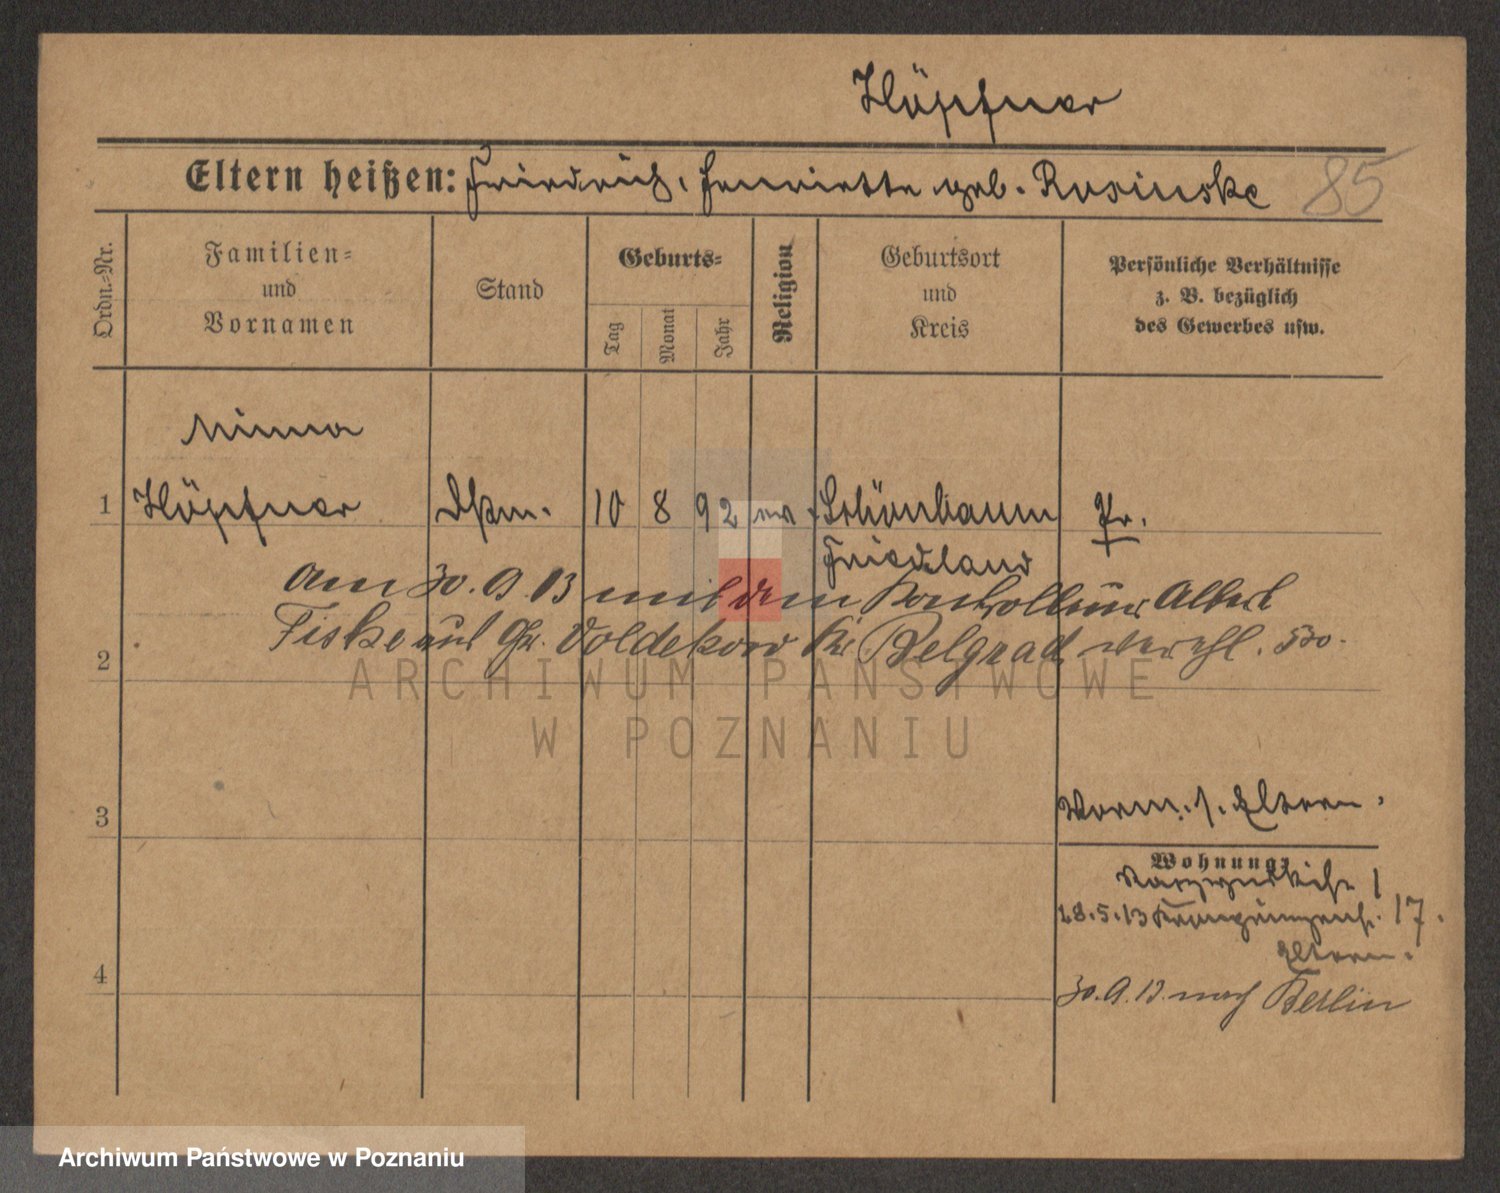 Höpfner
Eltern heißen: Friedrich, Henriette geb. Rosinske 85
Ordn.-Nr.
Familien- und Vornamen
Stand
Geburts-
Tag
Monat
Jahr
Religion
Geburtsort und Kreis
Persönliche Verhältnisse
z. B. bezüglich
des Gewerbes usw.
Minna
1 Höpfner 10 8 92 ev. Schönbaum Pr.
Friedeland
am 30.9.13 mit dem Albert
Fiske aus Gr. Voldekow Kr. Belgrad verehl.
2
3
Vorm. s. Eltern.
Wohnung:
1
28.5.13 17.
Eltern.
4
30.9.13. nach Berlin
ARCHIWUM PAŃSTWOWE
W POZNANIU
Archiwum Państwowe w Poznaniu